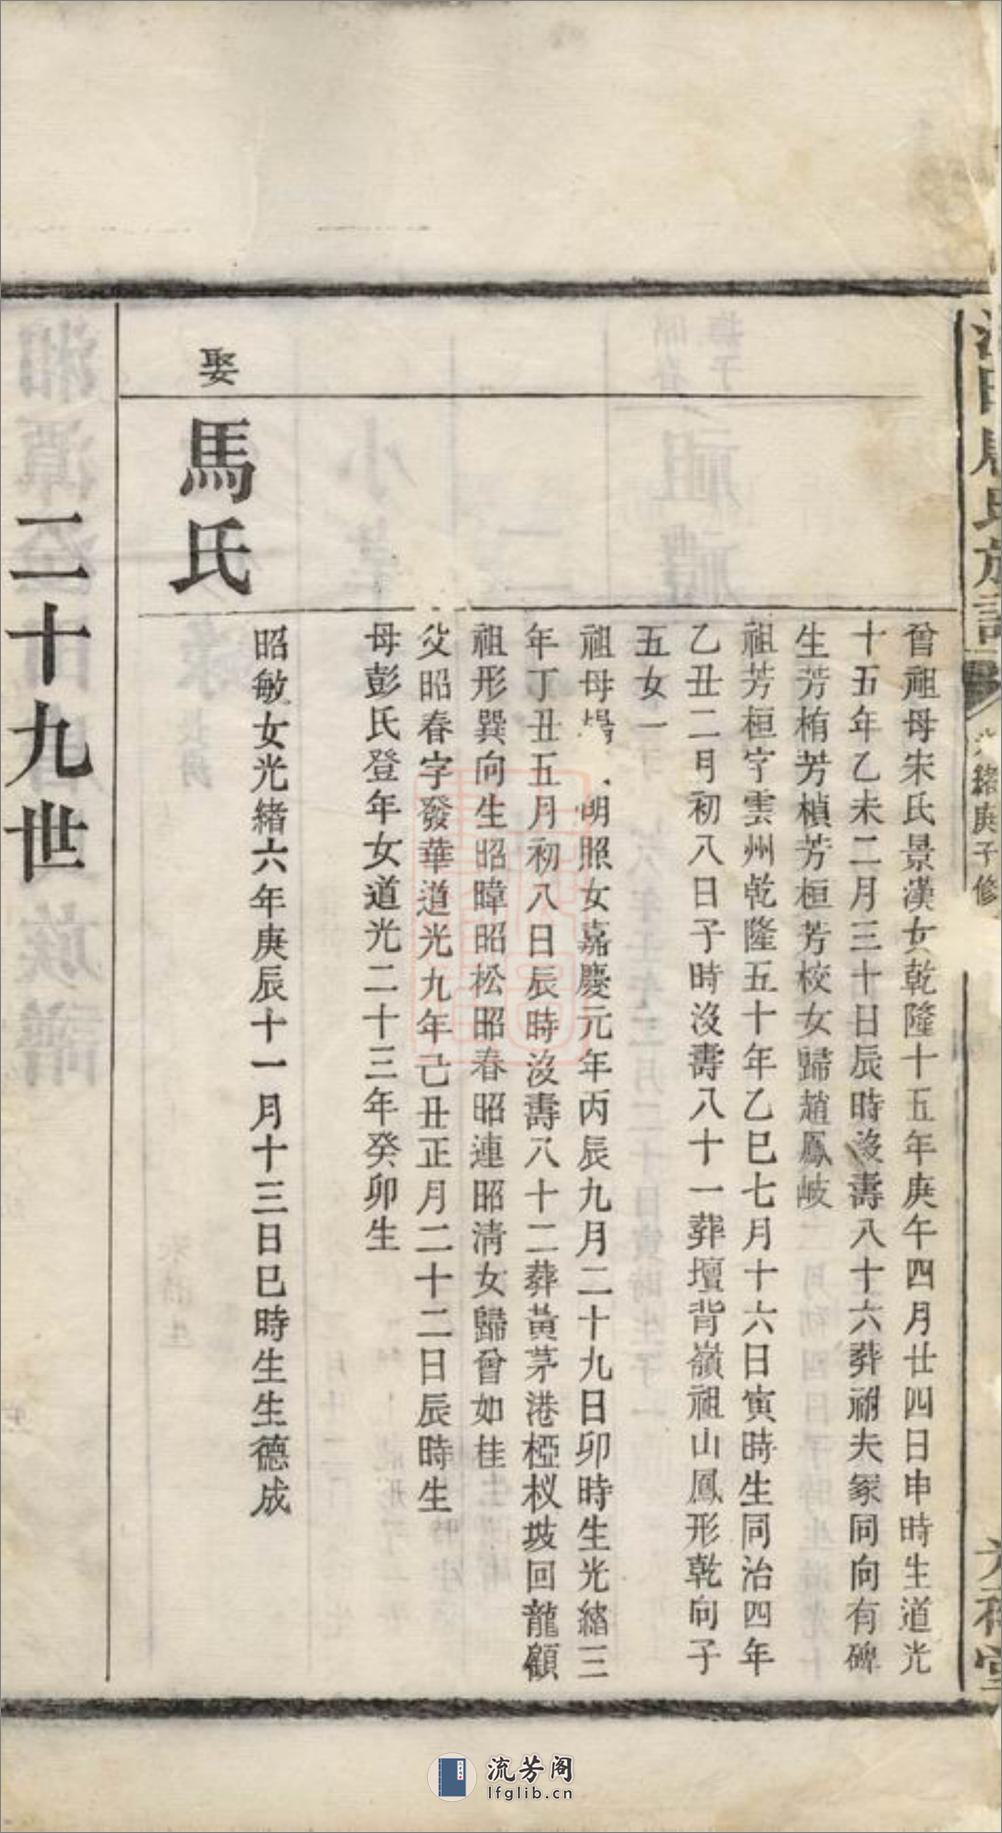 曾祖母宋氏景漢女乾隆十五年庚午四月廿四日申時生道光
十五年乙未二月三十日辰時沒壽八十六葬祔夫冢同向有碑
生芳栯芳楨芳桓芳校女歸趙鳳岐
祖芳桓字雲州乾隆五十年乙巳七月十六日寅時生同治四年
乙丑二月初八日子時沒壽八十一葬壇背嶺祖山鳳形乾向子
五女一
祖母楊 明照女嘉慶元年丙辰九月二十九日卯時生光緒三
年丁丑五月初八日辰時沒壽八十二葬黃茅港椏杈坡回龍顧
祖形巽向生昭暐昭松昭春昭連昭清女歸曾如桂
父昭春字發華道光九年己丑正月二十二日辰時生
母彭氏登年女道光二十三年癸卯生
娶
馬氏
昭敏女光緒六年庚辰十一月十三日巳時生生德成
二十九世
氏族譜
光緒庚子修
六
流芳阁
lfglib.cn